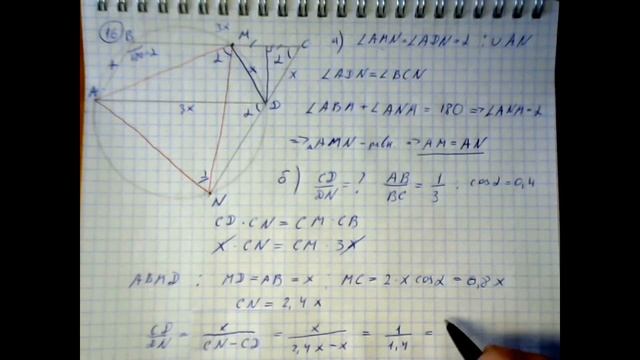 16
B 3x M C
180-2
x 2 2 x
A 3x
2 D
2
N
а) ∠AMN=∠ADN=2 : ∪AN
∠ADN=∠BCN
∠ABM+∠ANM=180 ⇒ ∠ANM=2
⇒ △AMN-равн ⇒ AM=AN
б) CD/DN = ? AB/BC = 1/3 ; cos2=0,4
CD·CN=CM·CB
x·CN=CM·3x
ABMD : MD=AB=x ; MC=2·x cos2=0,8x
CN=2,4x
CD/DN = x/(CN-CD) = x/(2,4x-x) = 1/1,4 =